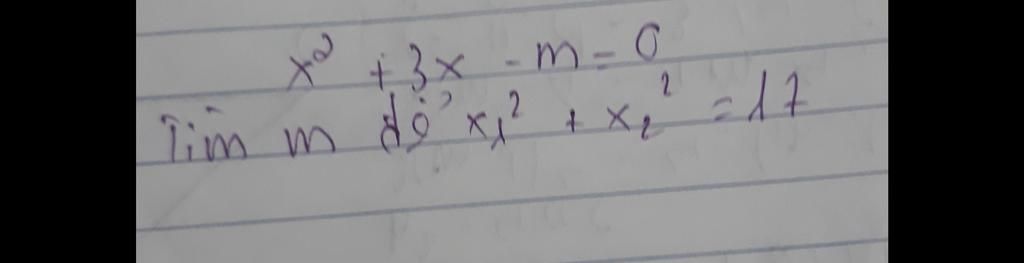 x² + 3x - m = 0
Tìm m để x₁² + x₂² = 17